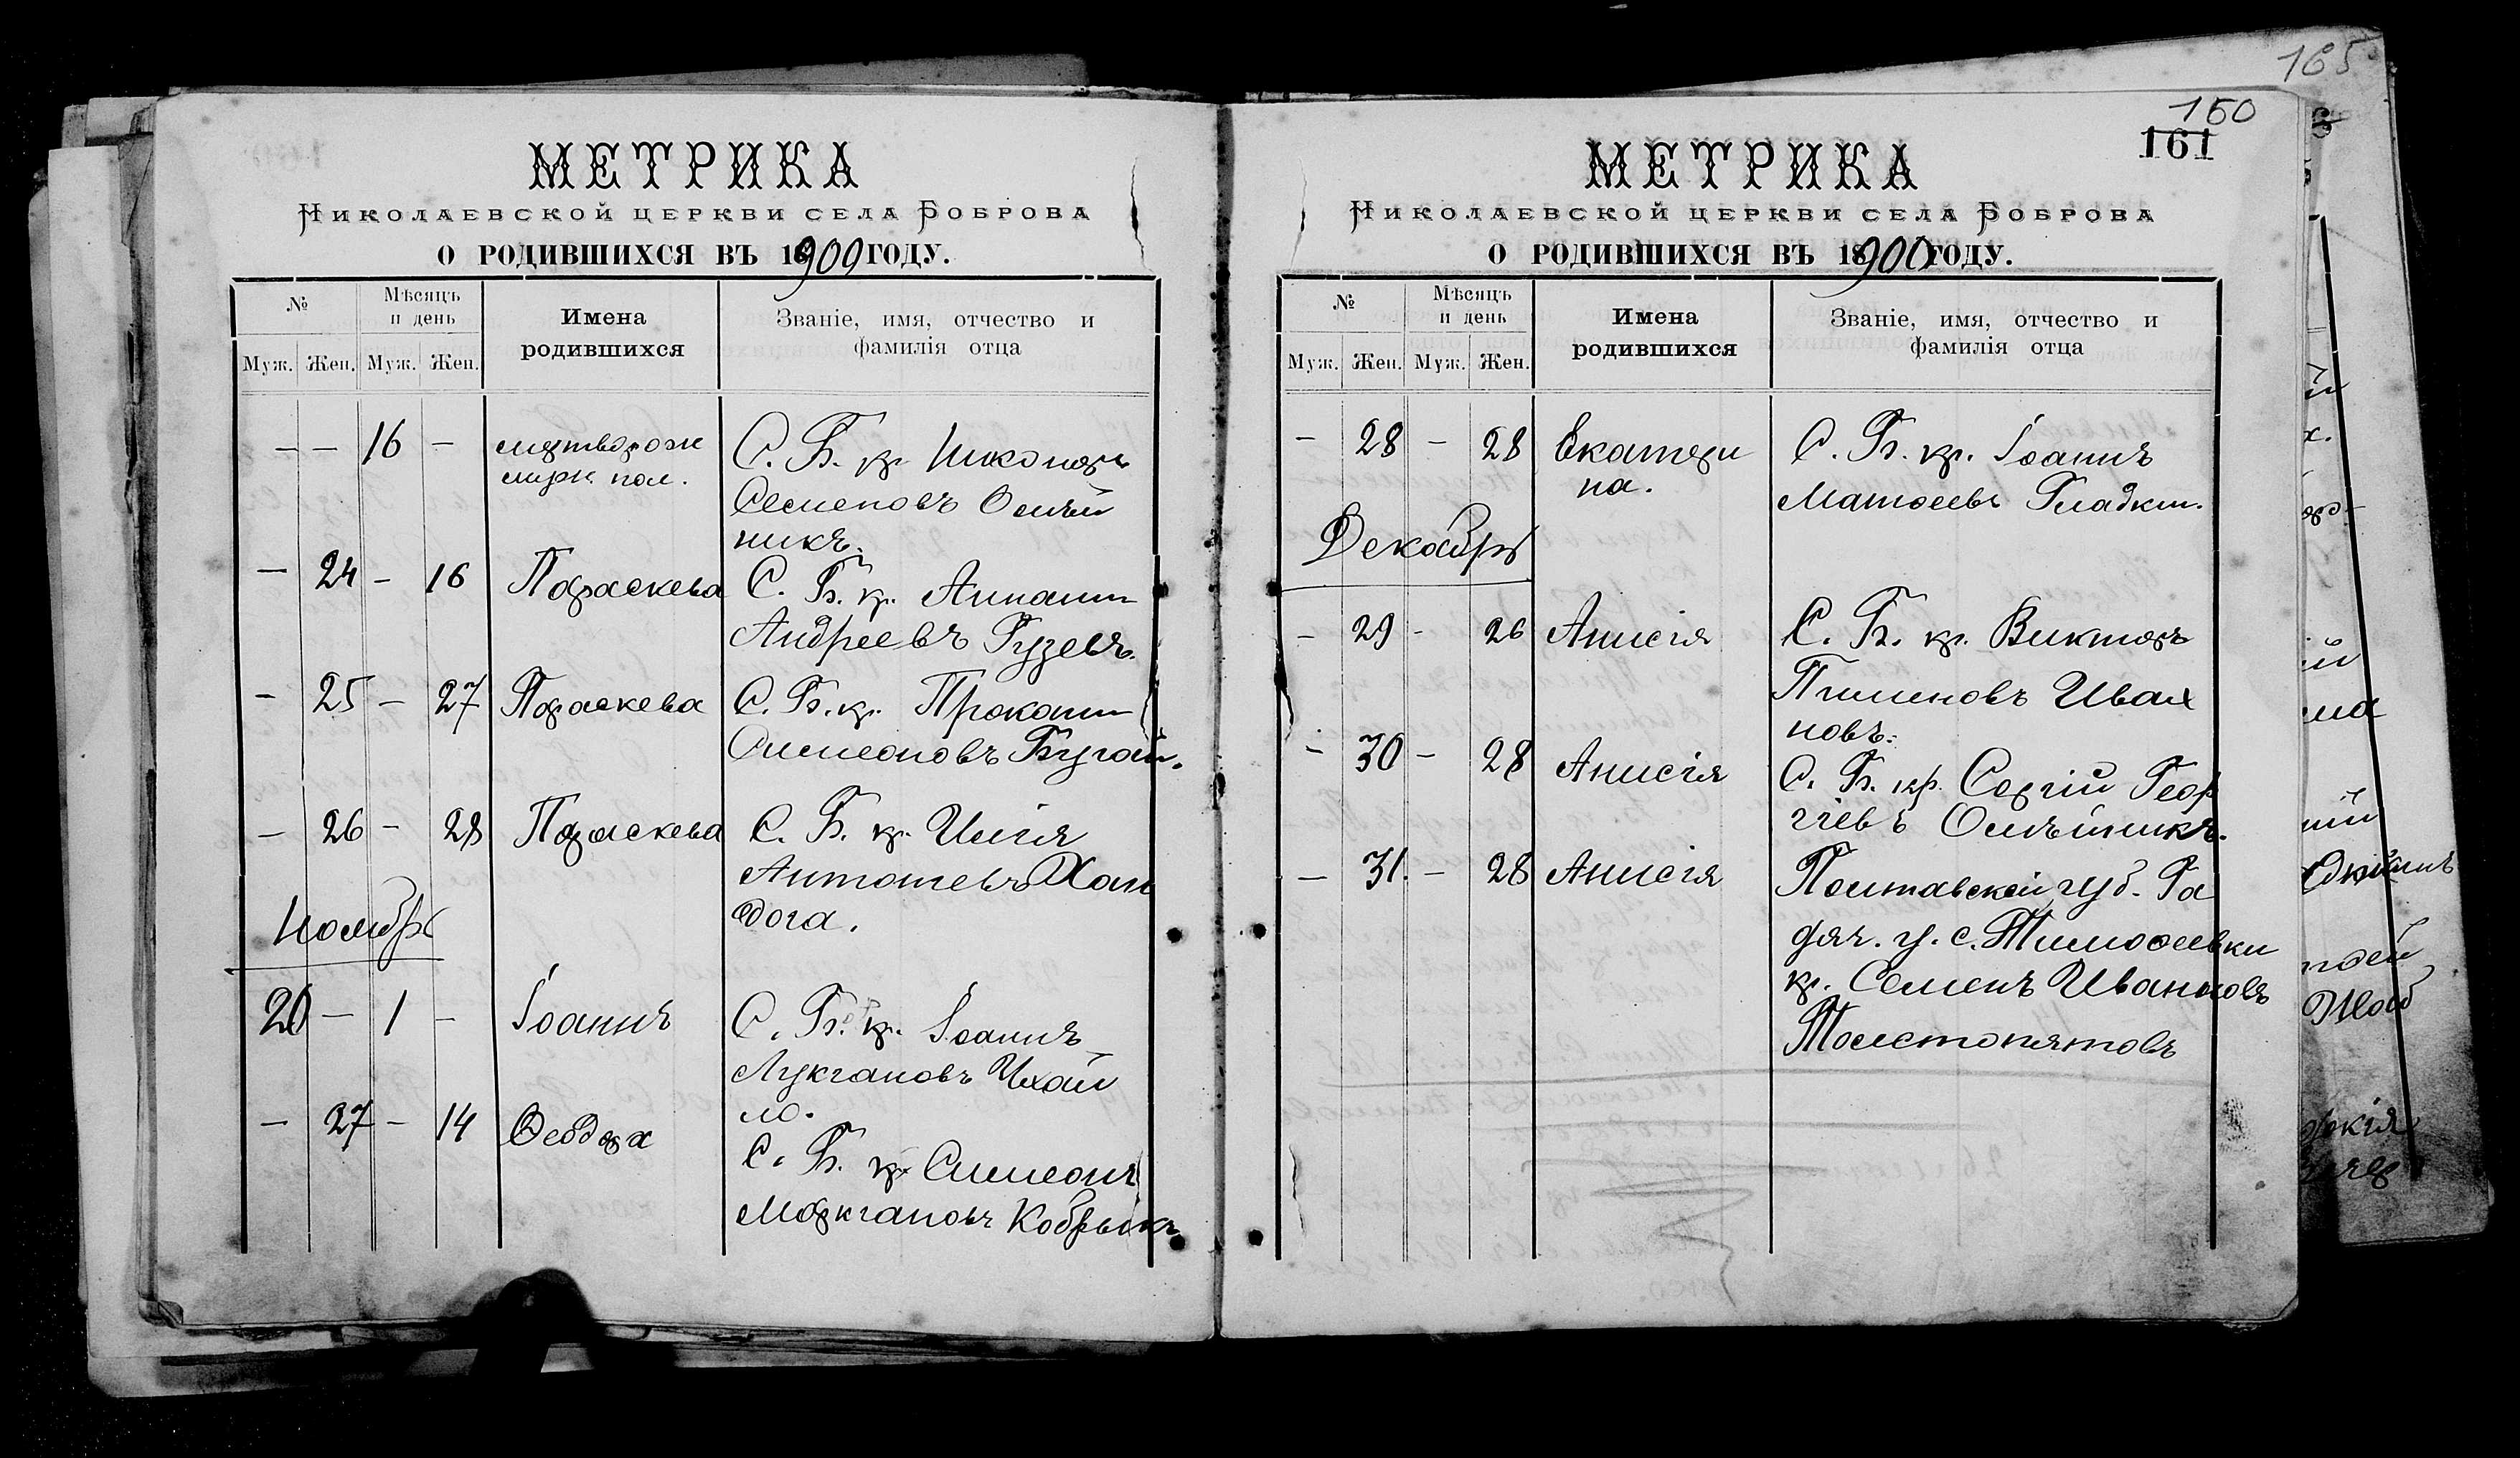 МЕТРИКА
НИКОЛАЕВСКОЙ ЦЕРКВИ СЕЛА БОБРОВА
О РОДИВШИХСЯ ВЪ 1900 ГОДУ.
№ Мѣсяцъ и день Имена родившихся Званіе, имя, отчество и фамилія отца
Муж. Жен. Муж. Жен.
— — 16 — мертворож С. Б. кр. Никоноръ
мужк. пол. Семеновъ Олѣй
никъ.
— 24 — 16 Параскева С. Б. кр. Ананiи
Андреевъ Гузевъ.
— 25 — 27 Параскева С. Б. кр. Прокопiи
Симеоновъ Бугай.
— 26 — 28 Параскева С. Б. кр. Илiя
Антоневъ Хан
дога.
Ноябрь
20 — 1 — Іоаннъ С. Б. кр. Іоаннъ
Лукіановъ Михай
ло.
— 27 — 14 Ѳеодора С. Б. кр. Симеонъ
Маркіановъ Кобрыкъ
165
150
161
МЕТРИКА
НИКОЛАЕВСКОЙ ЦЕРКВИ СЕЛА БОБРОВА
О РОДИВШИХСЯ ВЪ 1900 ГОДУ.
№ Мѣсяцъ и день Имена родившихся Званіе, имя, отчество и фамилія отца
Муж. Жен. Муж. Жен.
— 28 — 28 Екатери С. Б. кр. Іоаннъ
на. Матѳеевъ Гладкiй.
Декабрь
— 29 — 26 Анисія С. Б. кр. Викторъ
Пименовъ Ивах
новъ.
— 30 — 28 Анисія С. Б. кр. Сергій Геор
гіевъ Олѣйникъ.
— 31. — 28 Анисія Полтавской губ. Га
дяч. у. с. Тимоѳеевки
кр. Семенъ Ивановъ
Толстопятовъ